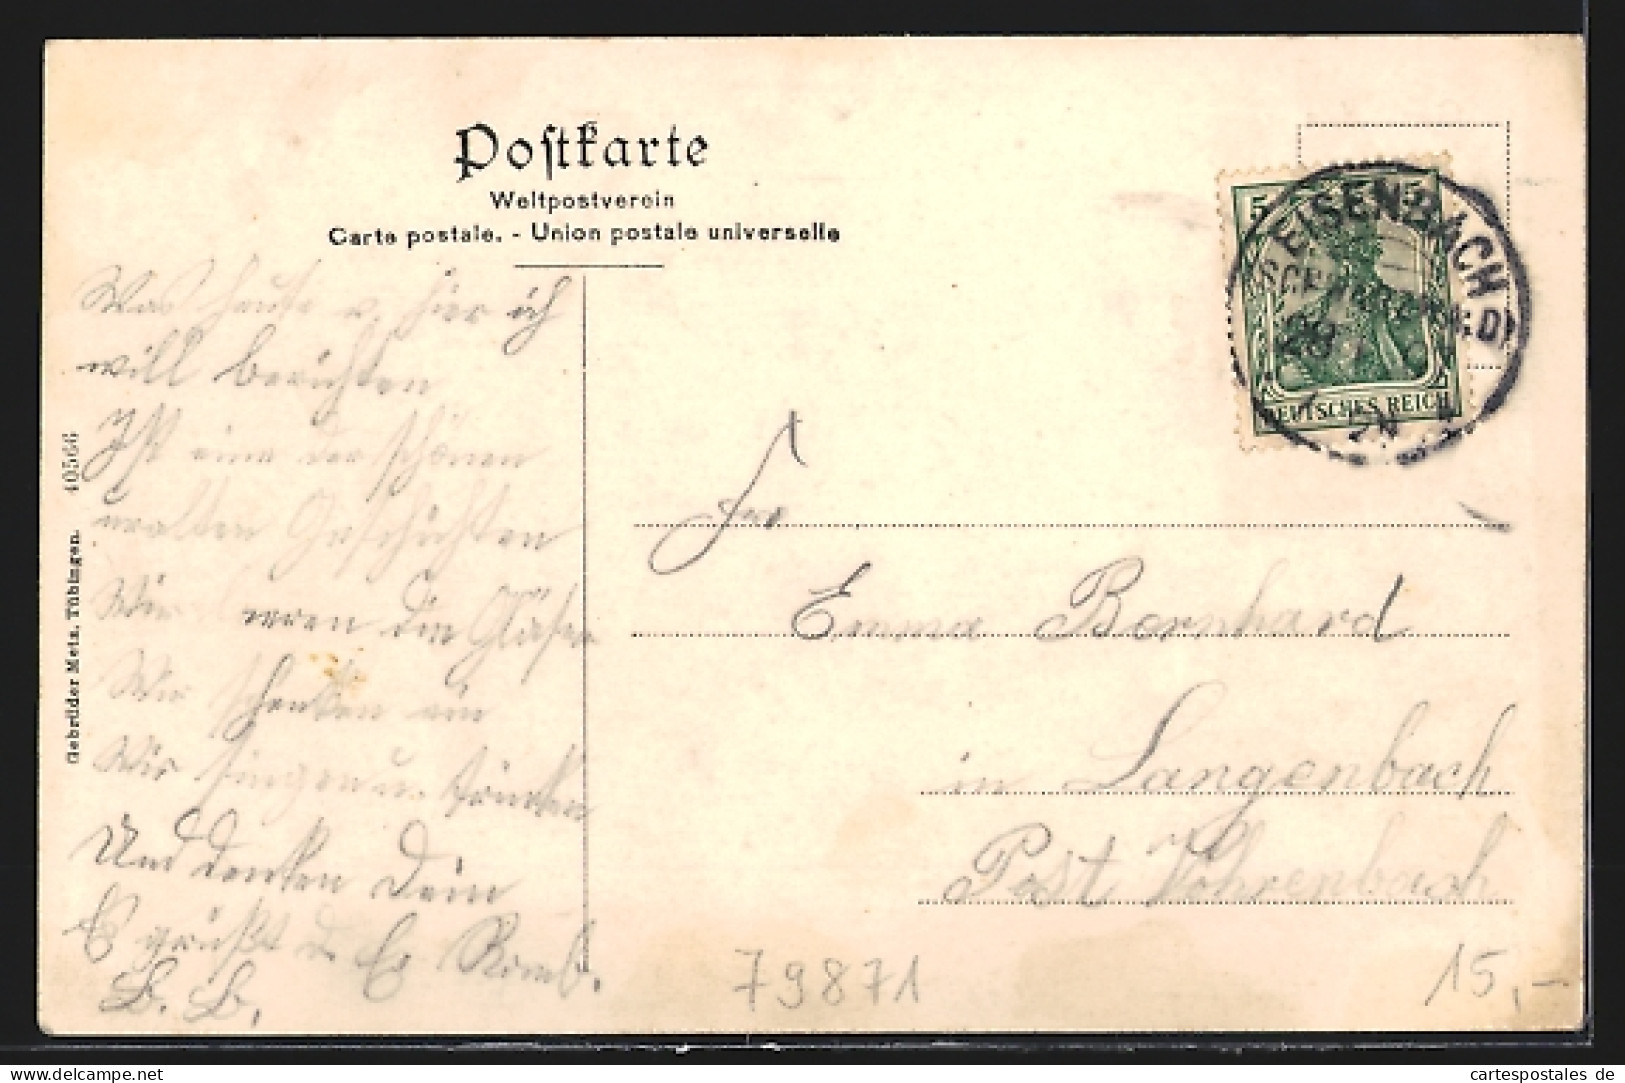 Postkarte
Weltpostverein
Carte postale. - Union postale universelle
Was heute u. hier ich
will berichten
Ist eine der schönen
uralten Geschichten
Wir leeren die Gläser
Wir schenken ein
Wir singen u. trinken
Und denken Dein
Es grüßt
B. B.
Gebrüder Metz, Tübingen. 40566
5 5
DEUTSCHES REICH
EISENBACH
Frl
Emma Bernhard
in Langenbach
Post Vöhrenbach
79871
15,-
www.delcampe.net
cartespostales de